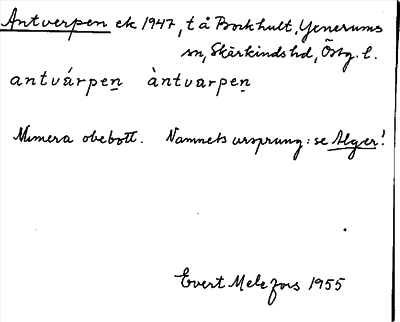 Antverpen ek 1947, t å Bockhult, Yxnerums
sn, Skärkinds hd, Östg. l.
antvárpen àntvarpen
Numera obebott. Namnets ursprung: se Alger!
Evert Melefors 1955